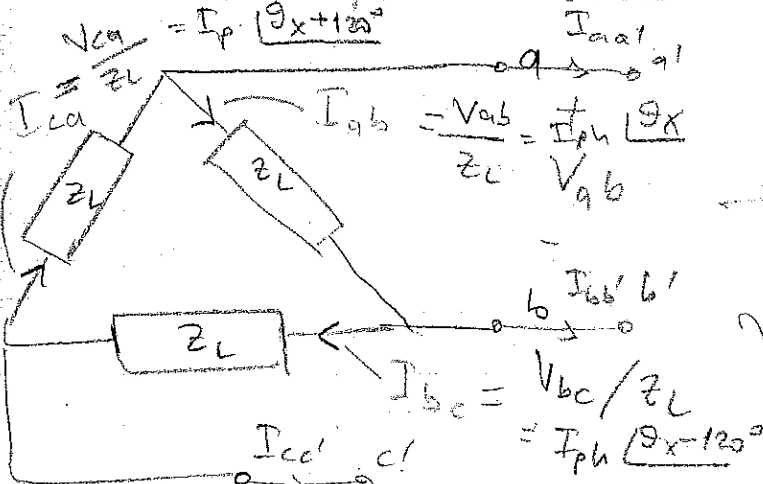 Vca/ZL = Ip ∠θx+120°
Ica =
Iaa'
a a'
Iab = Vab/ZL = Iph ∠θx
+
Vab
-
ZL
ZL
b Ibb' b'
ZL
Ibc = Vbc/ZL
= Iph ∠θx-120°
Icc' c'